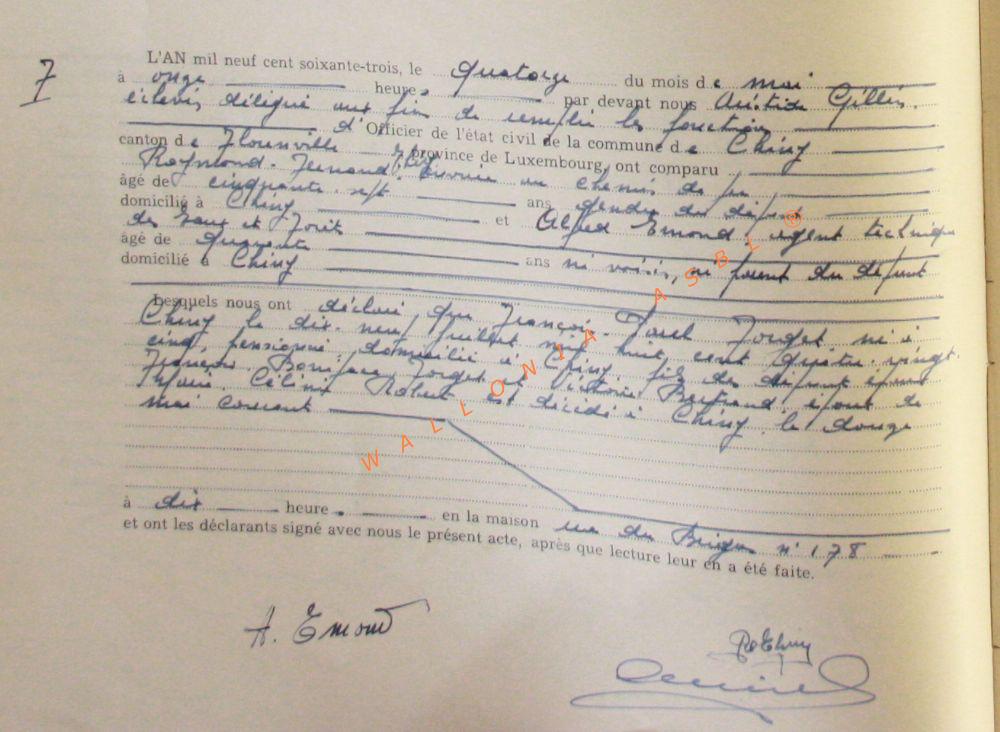 7
L'AN mil neuf cent soixante-trois, le quatorze du mois de mai
à onze heures par devant nous Aristide Gillin
échevin délégué aux fin de remplir les fonctions
d'Officier de l'état civil de la commune de Chiny
canton de Florenville province de Luxembourg, ont comparu
Raymond. Fernand. ouvrier au chemin de fer
âgé de cinquante sept ans gendre du défunt
domicilié à Chiny et Alfred Emond, agent technique
des Eaux et Forêt
âgé de quarante ans ni voisin, ni parent du défunt
domicilié à Chiny
Lesquels nous ont déclaré, que François. Forget né à
Chiny le dix-neuf juillet mil huit cent quatre-vingt
cinq, pensionné, domicilié à Chiny, fils des défunt époux
François Forget et Bertrand, époux de
Célina Robert est décédé à Chiny, le douze
mai courant
à dix heures en la maison rue du n° 178
et ont les déclarants signé avec nous le présent acte, après que lecture leur en a été faite.
A. Emond
WALLONIA ASBL ®